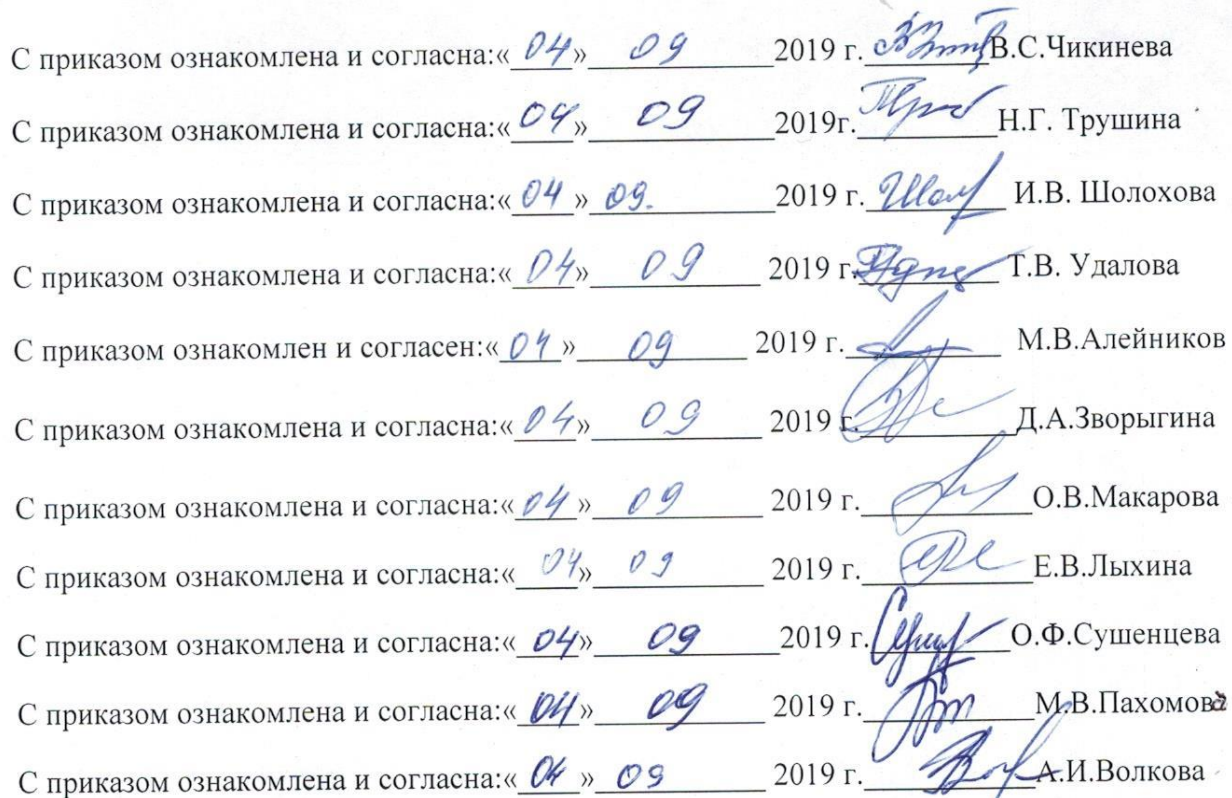 С приказом ознакомлена и согласна:« 04 » 09 2019 г. В.С.Чикинева
С приказом ознакомлена и согласна:« 04 » 09 2019г. Н.Г. Трушина
С приказом ознакомлена и согласна:« 04 » 09. 2019 г. И.В. Шолохова
С приказом ознакомлена и согласна:« 04 » 09 2019 г. Т.В. Удалова
С приказом ознакомлен и согласен:« 04 » 09 2019 г. М.В.Алейников
С приказом ознакомлена и согласна:« 04 » 09 2019 г. Д.А.Зворыгина
С приказом ознакомлена и согласна:« 04 » 09 2019 г. О.В.Макарова
С приказом ознакомлена и согласна:« 04 » 09 2019 г. Е.В.Лыхина
С приказом ознакомлена и согласна:« 04 » 09 2019 г. О.Ф.Сушенцева
С приказом ознакомлена и согласна:« 04 » 09 2019 г. М.В.Пахомова
С приказом ознакомлена и согласна:« 04 » 09 2019 г. А.И.Волкова